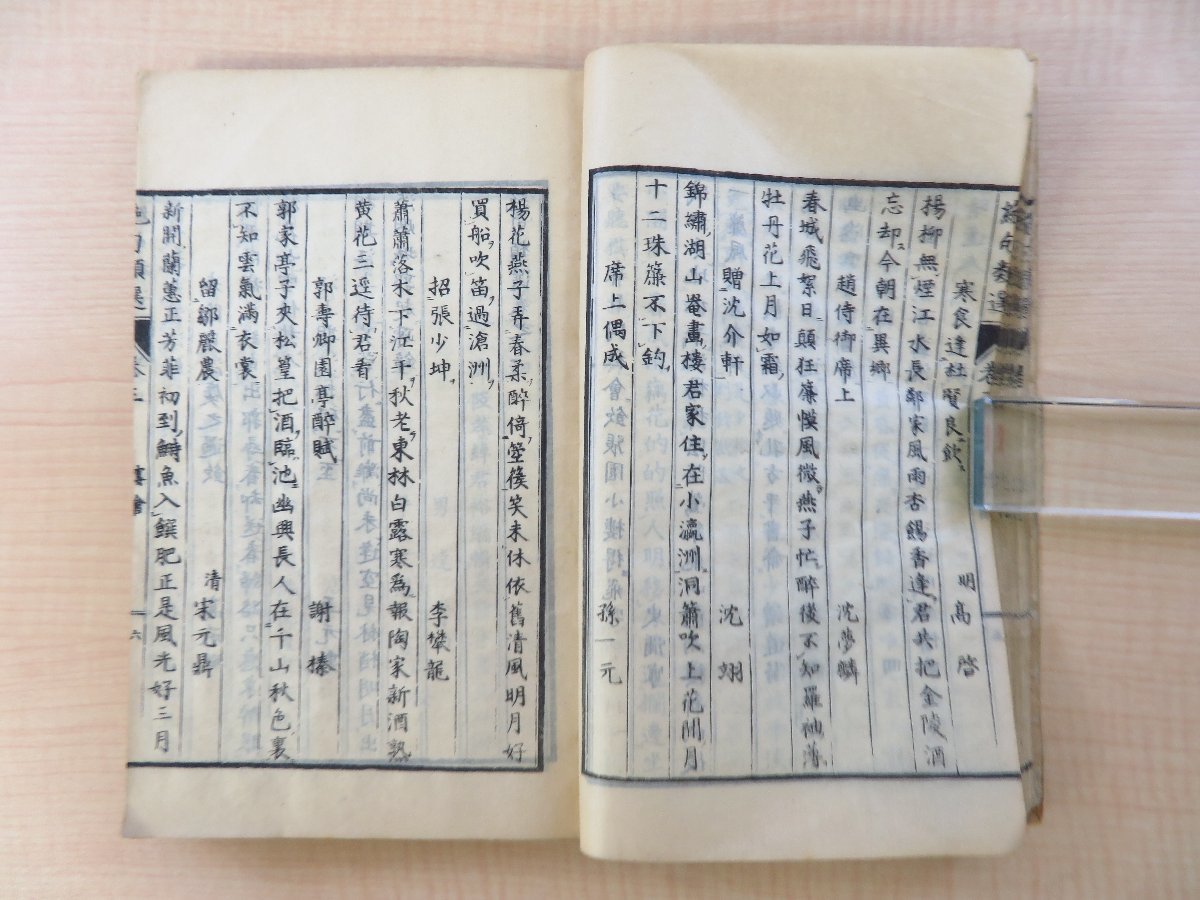 寒食逢杜賢良飲 明高啓
楊柳無煙江水長鄰家風雨杏餳香逢君共把金陵酒
忘却今朝在異鄉
趙侍御席上 沈夢麟
春城飛絮日顛狂簾幙風微燕子忙醉後不知羅袖薄
牡丹花上月如霜
贈沈介軒 沈翊
錦繡湖山罨畫樓君家住在小瀛洲洞簫吹上花間月
十二珠簾不下鈎
席上偶成 孫一元
楊花燕子弄春柔醉倚箜篌笑未休依舊清風明月好
買船吹笛過滄洲
招張少坤 李攀龍
蕭蕭落木下江干秋老東林白露寒爲報陶家新酒熟
黃花三逕待君看
郭壽卿園亭醉賦 謝榛
郭家亭子夾松篁把酒臨池幽興長人在千山秋色裏
不知雲氣滿衣裳
留鄒麗農 清宋元鼎
新開蘭蕙正芳菲初到鰣魚入饌肥正是風光好三月
卷三
六